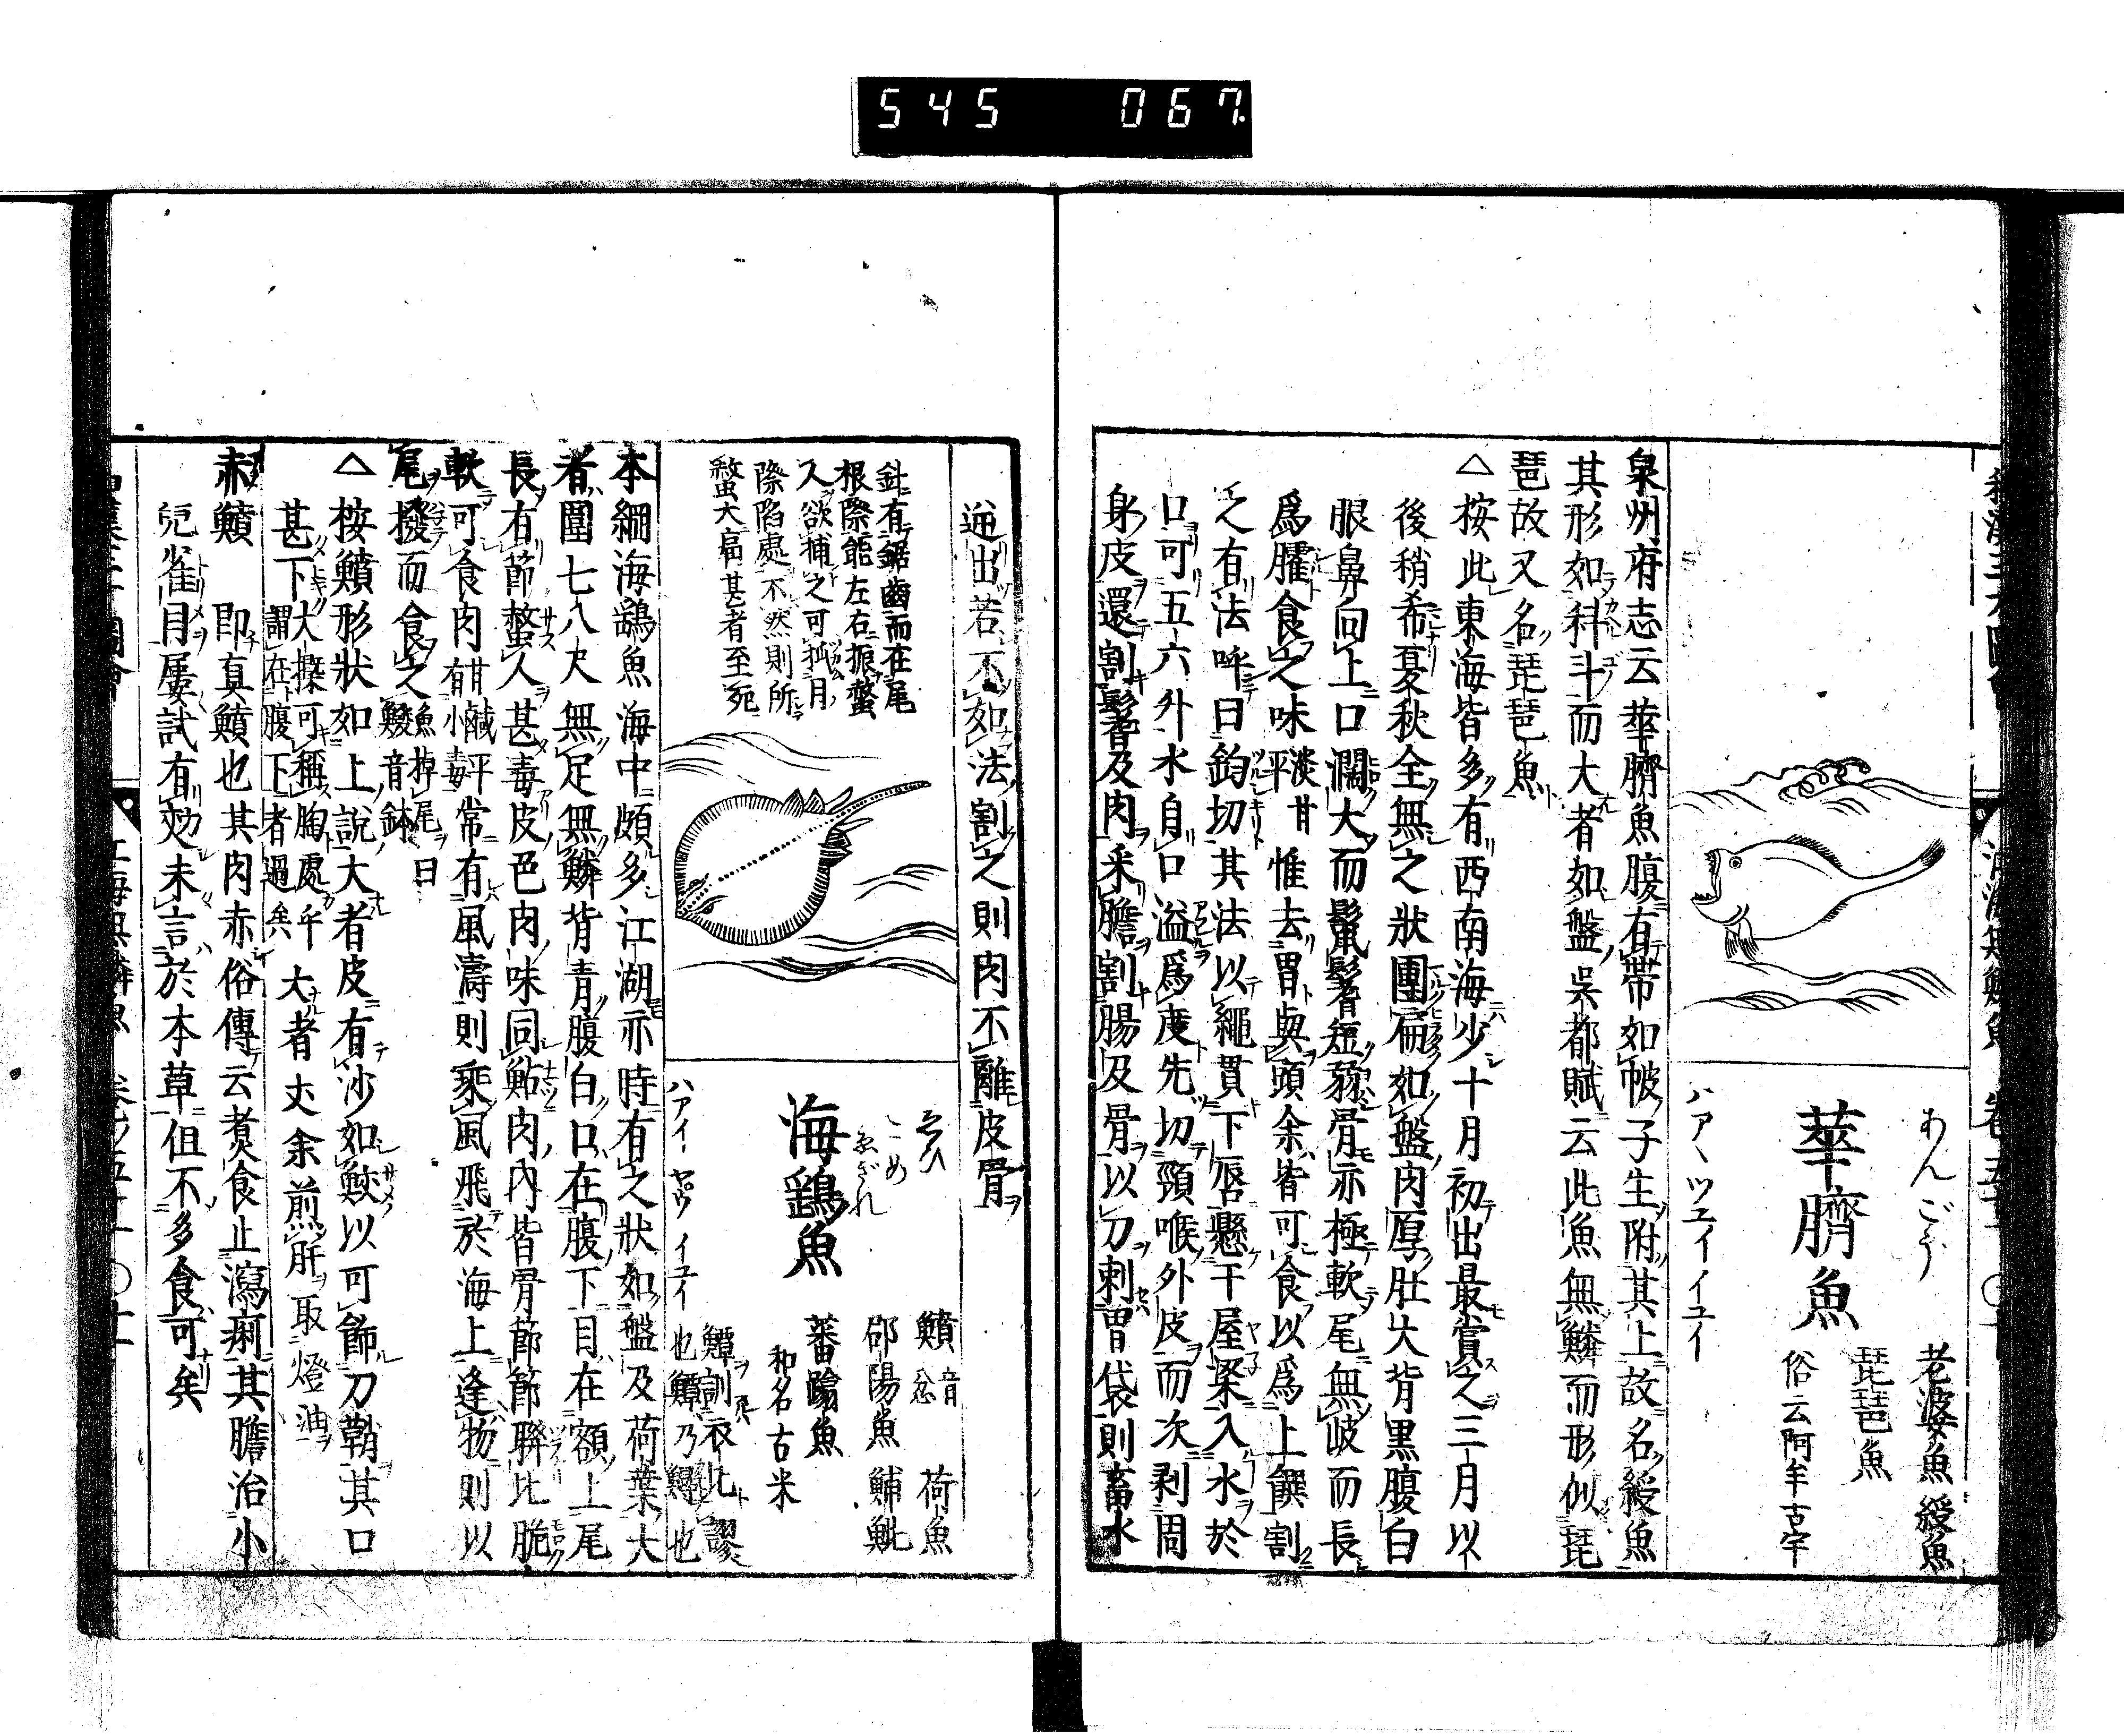 545 067
あんごう
華臍魚
老婆魚 綬魚
琵琶魚
俗云阿牟古宇
ハアヽツエイイユイ
泉州府志云華臍魚腹有帯如帔子生附其上故名綬魚
其形如科斗而大者如盤呉都賦云此魚無鱗而形似琵
琶故又名琵琶魚
△按此東海皆多有西南海少十月初出最賞之三月以
後稍希夏秋全無之狀團扁如盤肉厚肚大背黒腹白
眼鼻向上口濶大而鬛鬐短弱骨亦極軟尾無岐而長
爲臛食之味淡甘平惟去胃與頭余皆可食以爲上饌割
之有法呼曰鈎切其法以繩貫下唇懸干屋梁入水於
口可五六升水自口溢爲度先切頸喉外皮而次剥周
身皮還割鬐及肉釆膽割腸及骨以刀刺胃袋則畜水
迸出若不如法割之則肉不離皮骨
針有鋸齒而在尾
根際能左右振螫
人欲捕之可抓月
際陷處不然則所
螫大痛甚者至死
ゑひ
こめ
ゑぎれ
海鷂魚
鱝音忿 荷魚
邵陽魚 鯆魮
蕃蹹魚
和名古米
鱏訓衣比謬
也鱏乃鱘也
ハアイ ヤ゚ウ イユイ
本綱海鷂魚海中頗多江湖亦時有之狀如盤及荷葉大
者圍七八尺無足無鱗背青腹白口在腹下目在額上尾
長有節螫人甚毒皮色肉味同鮎肉内皆骨節節聯比脆
軟可食肉甘鹹平有小毒常有風濤則乘風飛於海上逢物則以
尾撥而食之魚掉尾曰鱍音鉢
△按鱝形狀如上說大者皮有沙如鮫以可飾刀鞘其口
甚下大檪可稱胸處乎謂在腹下者過矣大者丈余煎肝取燈油
赤鱝 即真鱝也其肉赤俗傳云煑食止瀉痢其膽治小
兒雀目屢試有效未言於本草但不多食可矣